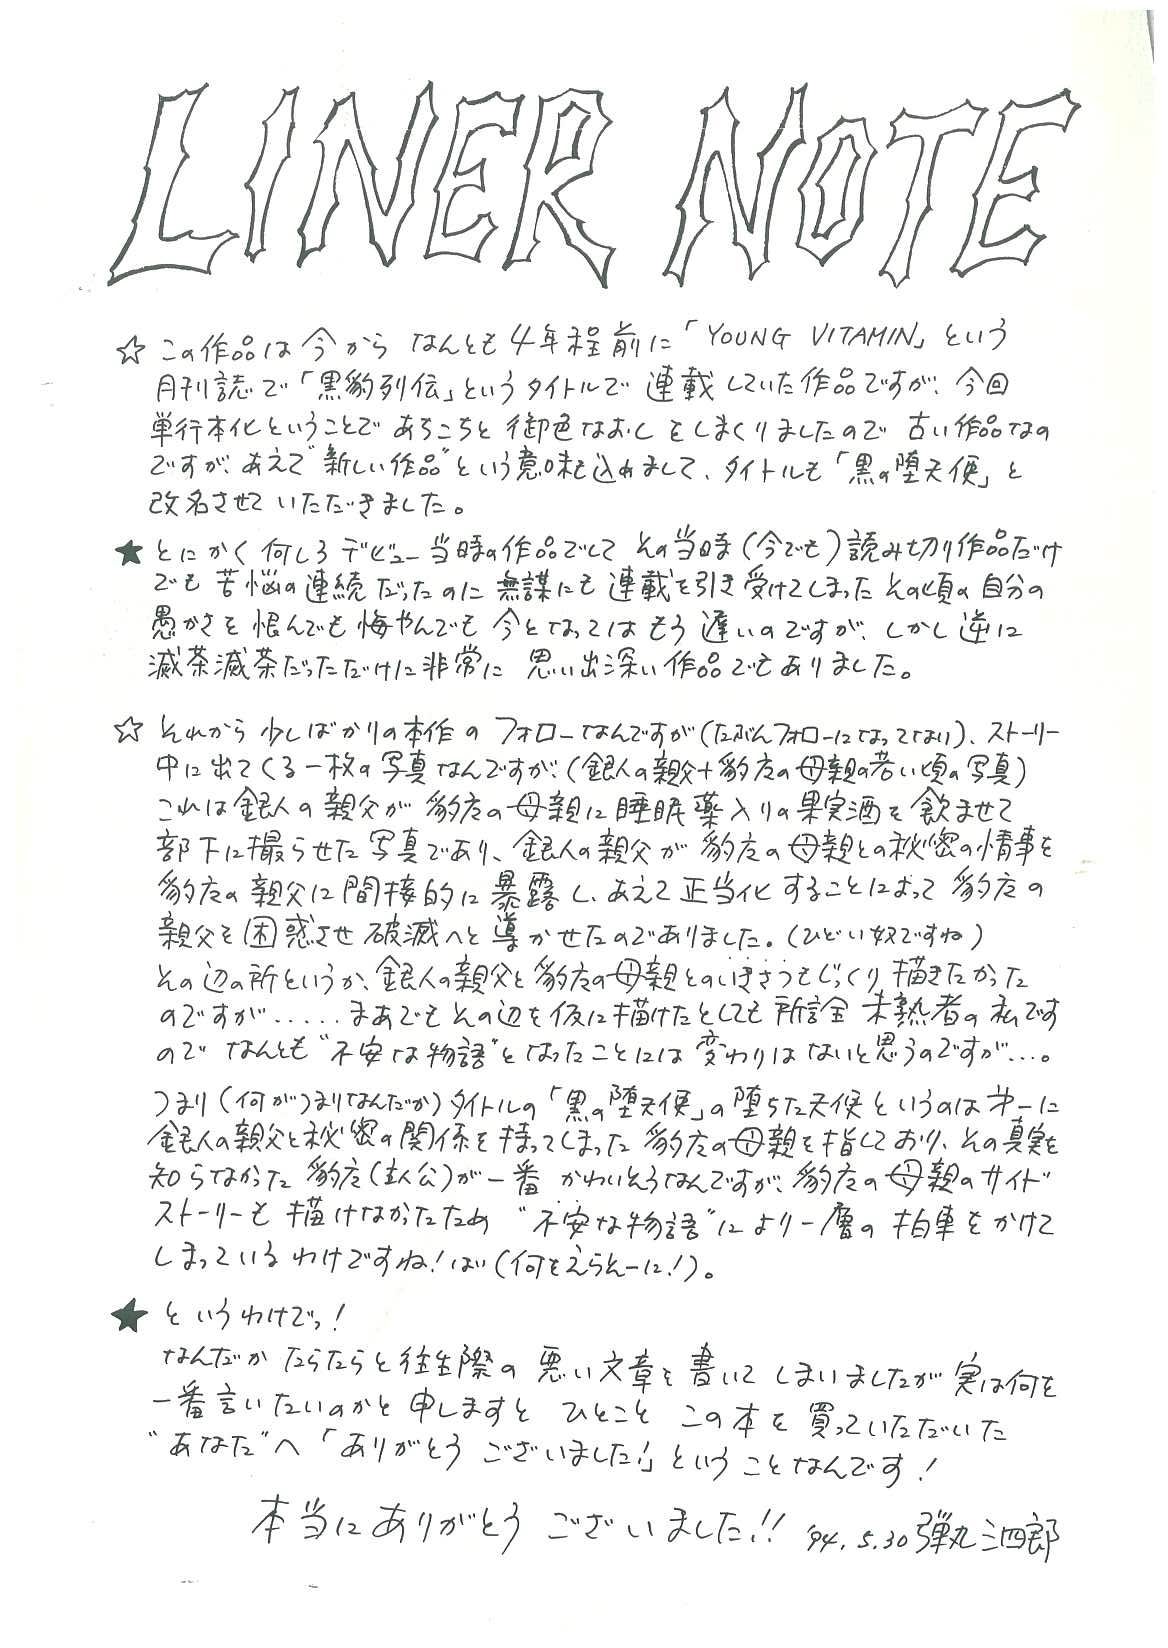 LINER NOTE
☆ この作品は今から なんとも4年程前に「YOUNG VITAMIN」という
月刊誌で「黒豹列伝」というタイトルで 連載していた作品ですが、今回
単行本化ということで あちこちと 御色なおし をしまくりましたので 古い作品なの
ですが、あえて"新しい作品"という意味も込めまして、タイトルも「黒の堕天使」と
改名させて いただきました。
★ とにかく 何しろ デビュー当時の作品でして その当時(今でも)読み切り作品だけ
でも 苦悩の連続だったのに 無謀にも 連載を引き受けてしまった その頃の自分の
愚かさを 恨んでも 悔やんでも 今となっては もう 遅いのですが、しかし逆に
滅茶滅茶だっただけに非常に 思い出深い作品でもありました。
☆ それから 少しばかりの本作の フォローなんですが(たぶんフォローになってない)、ストーリー
中に出てくる一枚の写真なんですが、(銀人の親父+豹彦の母親の若い頃の写真)
これは銀人の親父が 豹彦の母親に睡眠薬入りの果実酒を飲ませて
部下に撮らせた写真であり、銀人の親父が 豹彦の母親との秘密の情事を
豹彦の親父に間接的に暴露し、あえて正当化することによって 豹彦の
親父を困惑させ破滅へと導かせたのでありました。(ひどい奴ですね)
その辺の所というか、銀人の親父と豹彦の母親とのいきさつもじっくり描きたかった
のですが.....まあでもその辺を仮に描けたとしても所詮 未熟者の私です
ので なんとも"不安な物語"となったことには変わりはないと思うのですが...。
つまり(何がつまりなんだか)タイトルの「黒の堕天使」の堕ちた天使というのは才一に
銀人の親父と秘密の関係を持ってしまった 豹彦の母親を指しており、その真実を
知らなかった 豹彦(主人公)が一番 かわいそうなんですが、豹彦の母親のサイド
ストーリーも 描けなかったため "不安な物語"により一層の拍車をかけて
しまっているわけですね!はい(何をえらそーに!)。
★ というわけでっ!
なんだか たらたらと往生際の悪い文章を書いてしまいましたが実は何を
一番言いたいのかと申しますと ひとこと この本を買っていただいた
"あなた"へ「ありがとう ございました!」ということなんです!
本当にありがとう ございました!! '94.5.30 弾丸三四郎